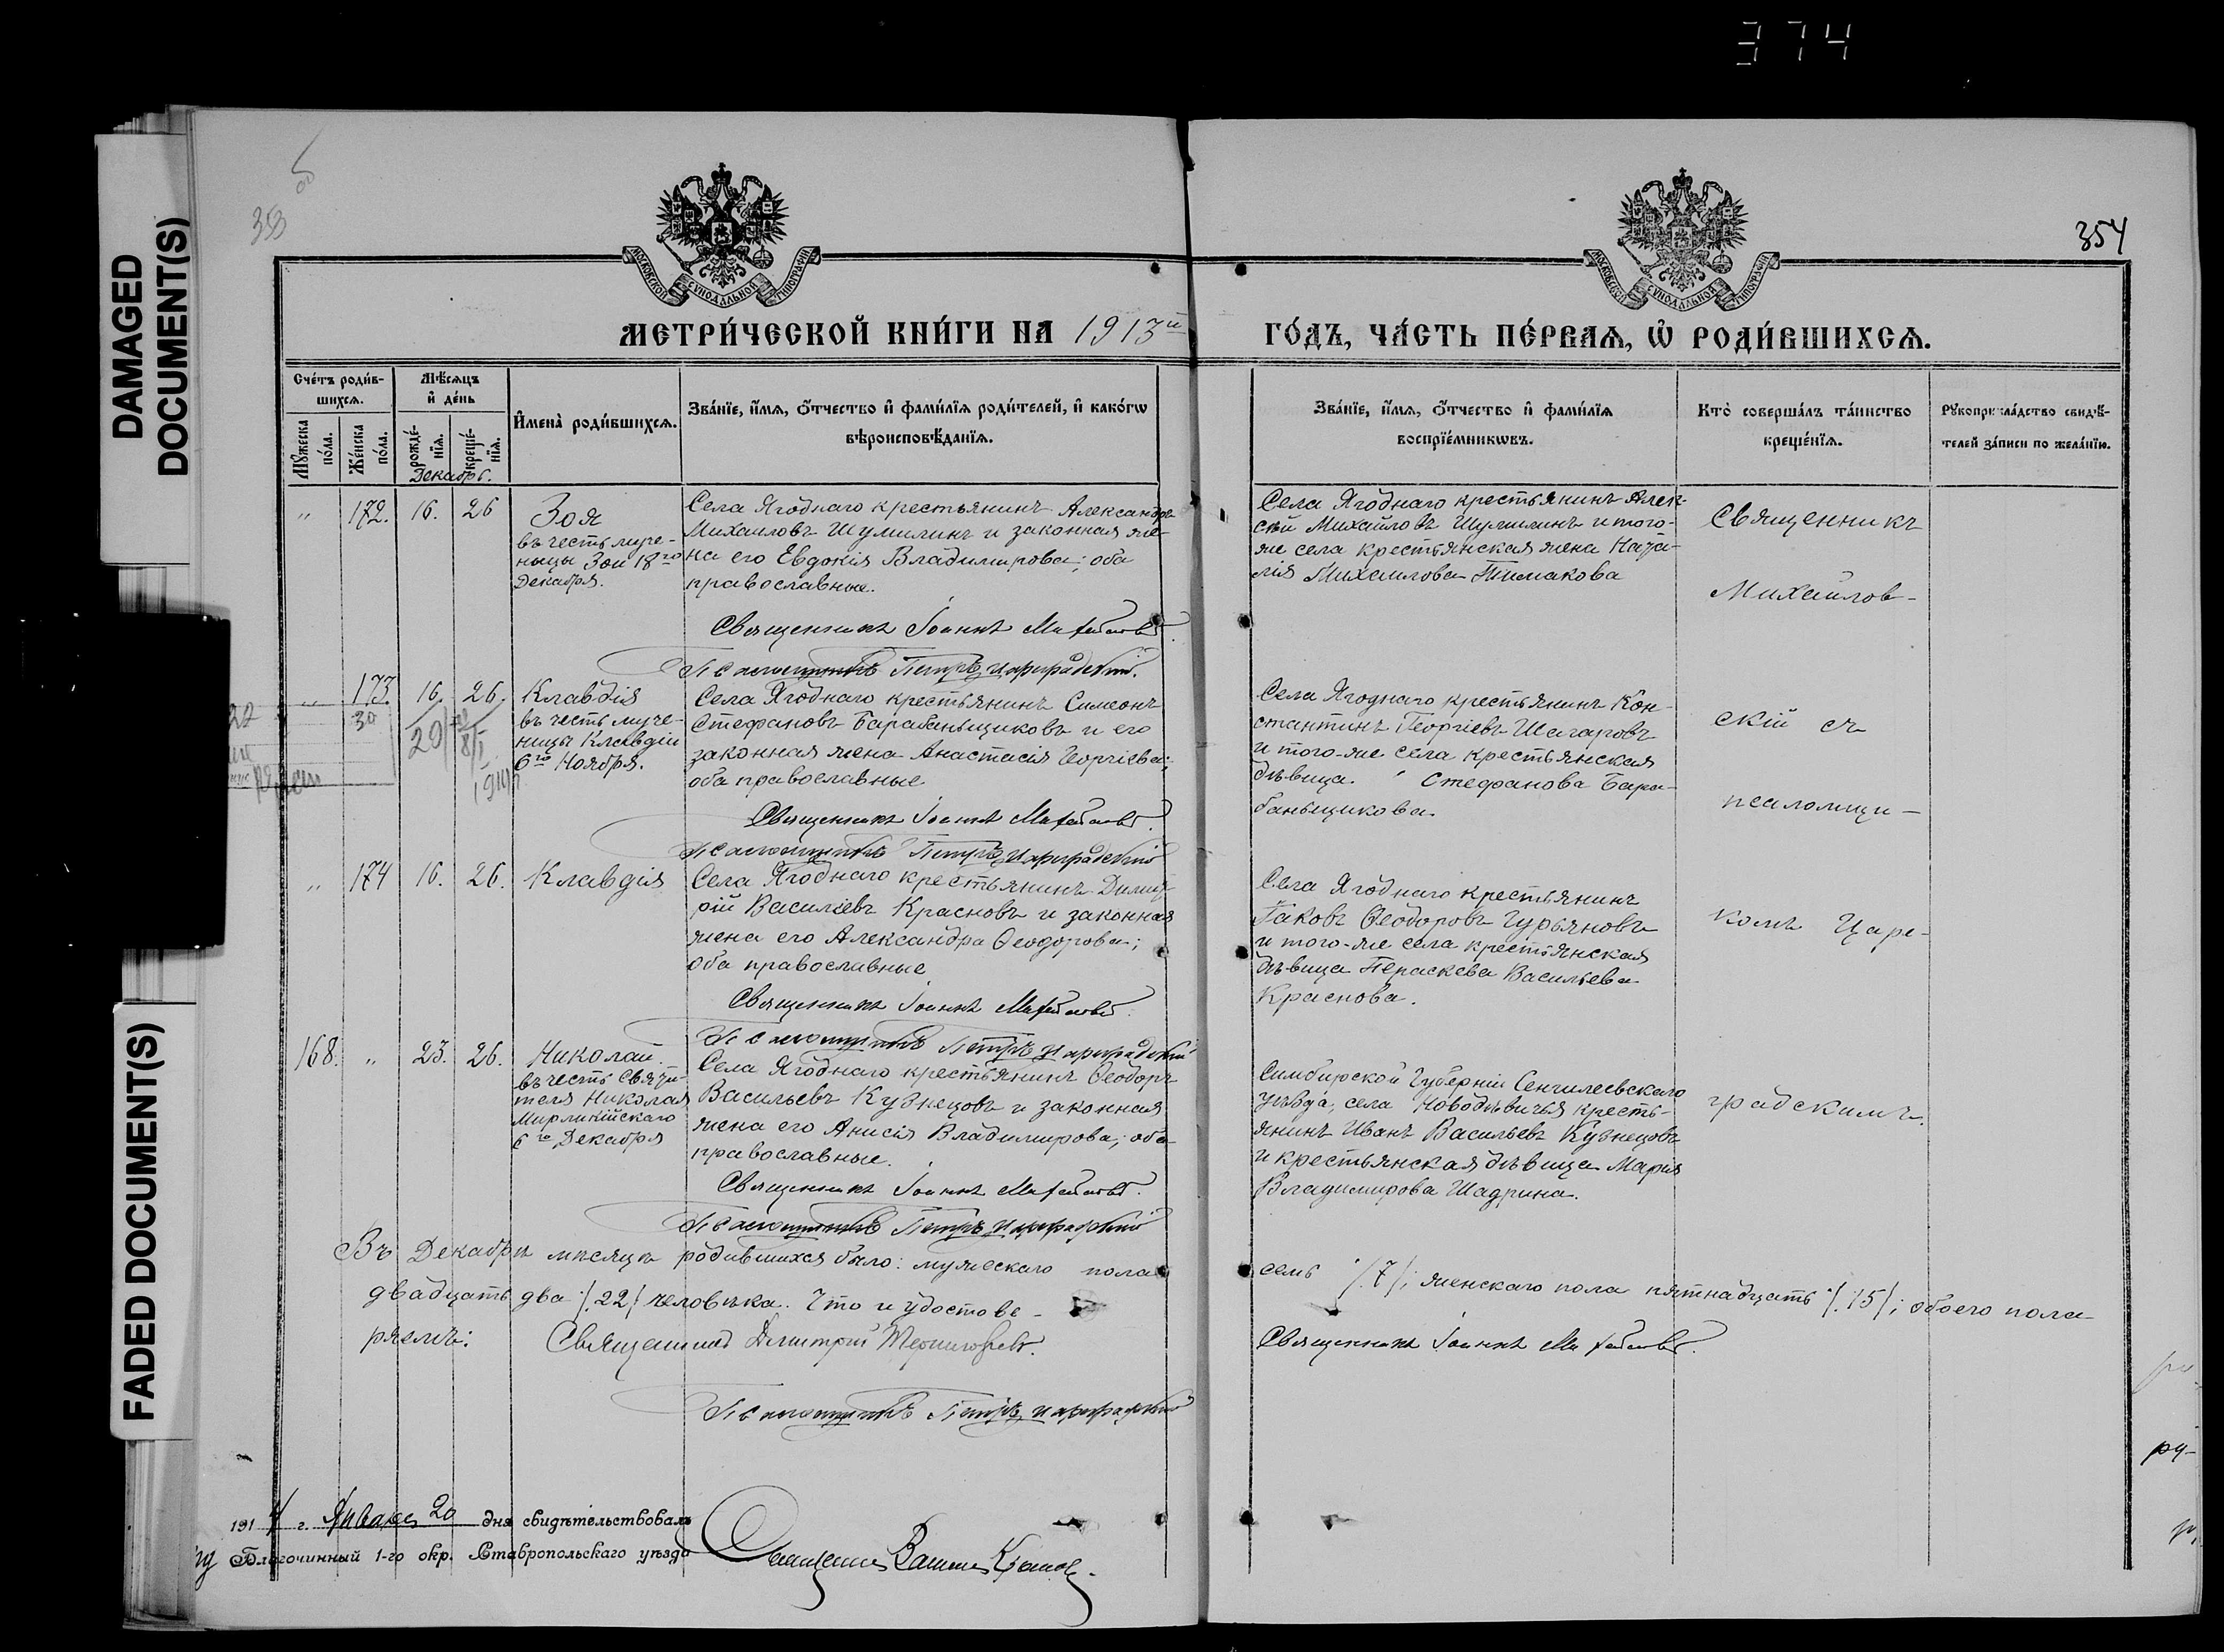 374
DAMAGED
DOCUMENT(S)
FADED DOCUMENT(S)
353
354
МОСКОВСКОЙ СѴНОДАЛЬНОЙ ТИПОГРАФІИ
МОСКОВСКОЙ СѴНОДАЛЬНОЙ ТИПОГРАФІИ
МЕТРИ́ЧЕСКОЙ КНИ́ГИ НА 1913й
ГО́ДЪ, ЧА́СТЬ ПЕ́РВАѦ, Ѡ҆ РОДИ́ВШИХСѦ.
Сче́тъ роди́в-
шихсѧ.
Мꙋ́жеска
по́ла.
Же́нска
по́ла.
Мѣ́сѧцъ
и҆ де́нь
рожде́-
нїѧ.
креще́-
нїѧ.
Декабрь.
И҆мена̀ роди́вшихсѧ.
Зва́нїе, и҆́мѧ, ѻ҆́тчество и҆ фами́лїѧ роди́телей, и҆ како́гѡ
вѣроисповѣ́данїѧ.
Зва́нїе, и҆́мѧ, ѻ҆́тчество и҆ фами́лїѧ
воспрїе́мникѡвъ.
Кто̀ соверша́лъ та́инство
креще́нїѧ.
Рꙋкоприкла́дство свидѣ́-
телей за́писи по жела́нїю.
" 172. 16. 26
Зоя
въ честь муче-
ницы Зои 18го
Декабря.
Села Ягоднаго крестьянинъ Александръ
Михаиловъ Шумилинъ и законная же-
на его Евдокія Владимирова; оба
православные.
Священникъ Іоаннъ Михайловъ.
Псаломщикъ Петръ Цареградскій.
Села Ягоднаго крестьянинъ Алек-
сѣй Михайловъ Шумилинъ и того-
же села крестьянская жена Ната-
лія Михаилова Тимакова
Священникъ
Михайлов-
скій съ
псаломщи-
комъ Царе-
градскимъ.
" 173. 16. 26.
30
29
8/I
1914
Клавдія
въ честь муче-
ницы Клавдіи
6го Ноября.
Села Ягоднаго крестьянинъ Симеонъ
Стефановъ Барабаньщиковъ и его
законная жена Анастасія Георгіева;
оба православные
Священникъ Іоаннъ Михайловъ.
Псаломщикъ Петръ Цареградскій
Села Ягоднаго крестьянинъ Кон-
стантинъ Георгіевъ Шагаровъ
и того-же села крестьянская
дѣвица Стефанова Бара-
баньщикова.
" 174 16. 26.
Клавдія
Села Ягоднаго крестьянинъ Димит-
рій Василіевъ Красновъ и законная
жена его Александра Ѳеодорова;
оба православные
Священникъ Іоаннъ Михайловъ.
Псаломщикъ Петръ Цареградскій
Села Ягоднаго крестьянинъ
Іаковъ Ѳеодоровъ Гурьяновъ
и того-же села крестьянская
дѣвица Параскева Васильева
Краснова.
168. " 23. 26.
Николай.
въ честь Святи-
теля Николая
Мирликійскаго
6го Декабря
Села Ягоднаго крестьянинъ Ѳеодоръ
Васильевъ Кузнецовъ и законная
жена его Анисія Владимирова; оба
православные.
Священникъ Іоаннъ Михайловъ.
Псаломщикъ Петръ Цареградскій
Симбирской Губерніи Сенгилеевскаго
уѣзда, села Новодѣвичья кресть-
янинъ Иванъ Васильевъ Кузнецовъ
и крестьянская дѣвица Марія
Владимирова Шадрина.
Въ Декабрѣ мѣсяцѣ родившихся было: мужескаго пола
семь /7/; женскаго пола пятнадцать /15/; обоего пола
двадцать два /22/ человѣка. Что и удостове-
ряемъ:
Священникъ Димитрій
Священникъ Іоаннъ Михайловъ.
Псаломщикъ Петръ Цареградскій
1914 г. Января 20 дня свидѣтельствовалъ
Благочинный 1-го окр. Ставропольскаго уѣзда
Священникъ
ру-